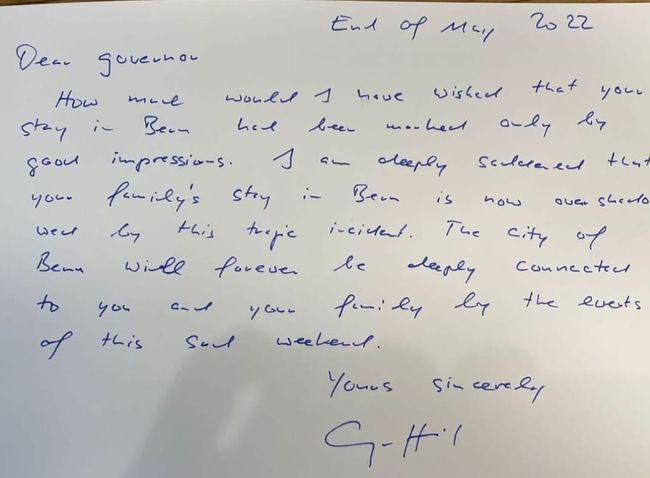 End of May 2022
Dear governor
How much would I have wished that your
stay in Bern had been marked only by
good impressions. I am deeply saddened that
your family's stay in Bern is now overshado
wed by this tragic incident. The city of
Bern will forever be deeply connected
to you and your family by the events
of this sad weekend.
Yours sincerely